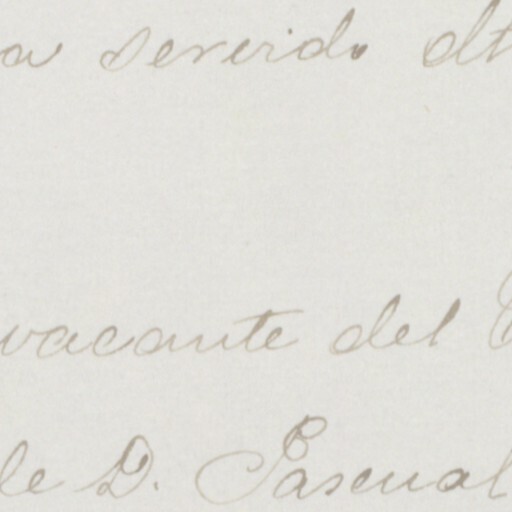 a servido
vacante del
de D. Pascual